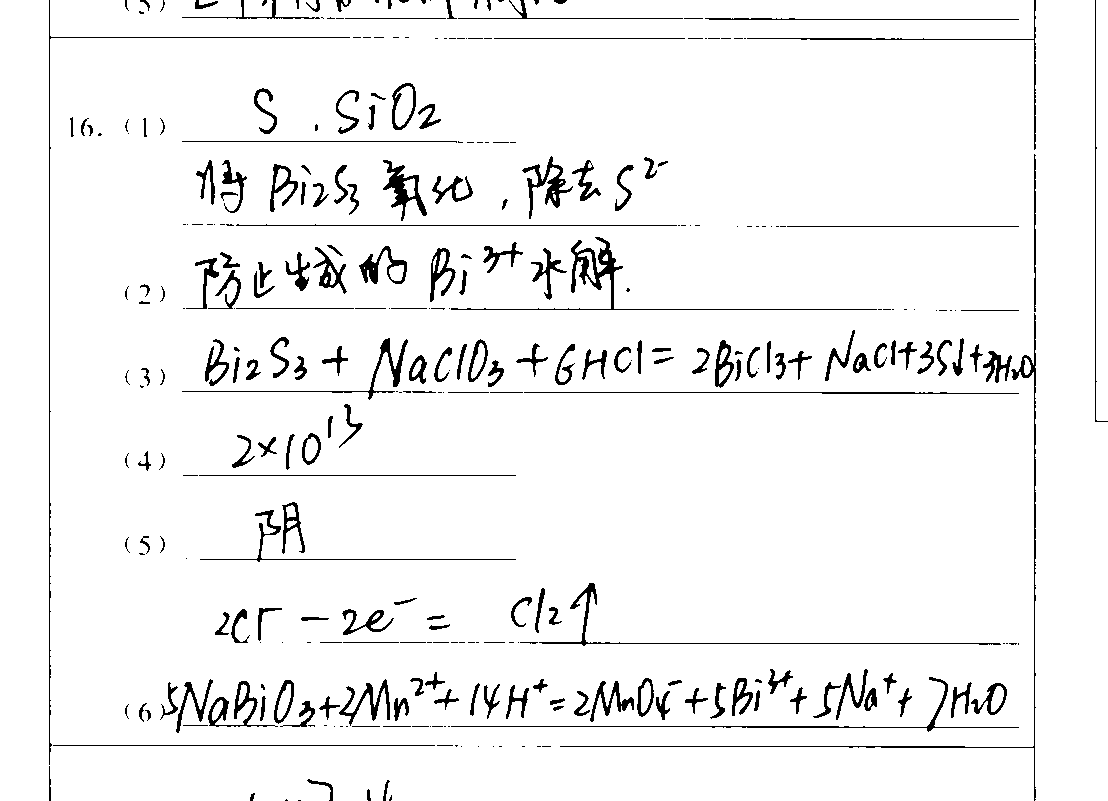 (3)
16. (1) S . SiO2
将 Bi2S3 氧化 , 除去 S²⁻
(2) 防止生成的 Bi³⁺ 水解.
(3) Bi2S3 + NaClO3 + 6HCl = 2BiCl3 + NaCl + 3S↓ + 3H2O
(4) 2×10¹³
(5) 阴
2Cl⁻ - 2e⁻ = Cl2↑
(6) 5NaBiO3 + 2Mn²⁺ + 14H⁺ = 2MnO4⁻ + 5Bi³⁺ + 5Na⁺ + 7H2O